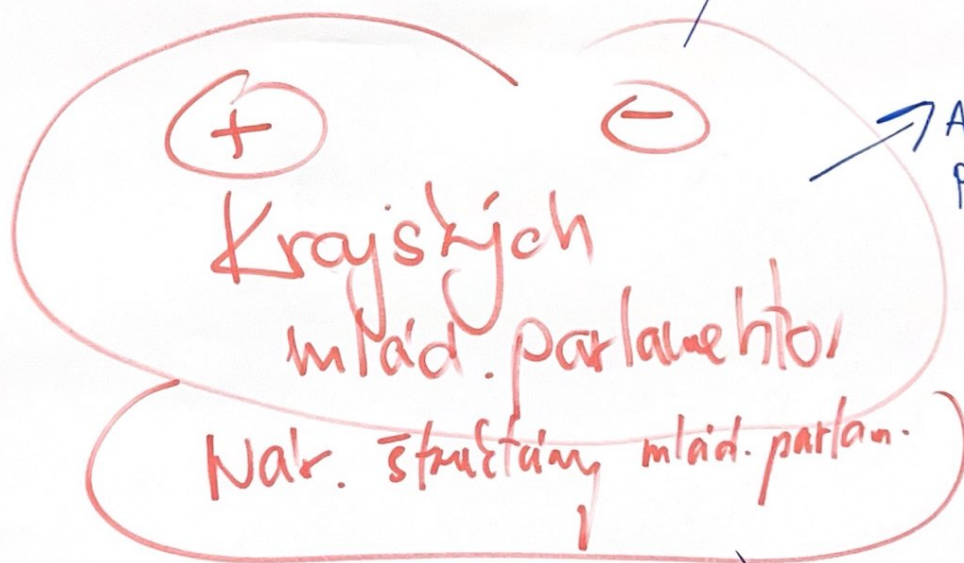 + −
Krajských
mlád. parlamentov
Nár. štruktúry mlád. parlam.
A
P